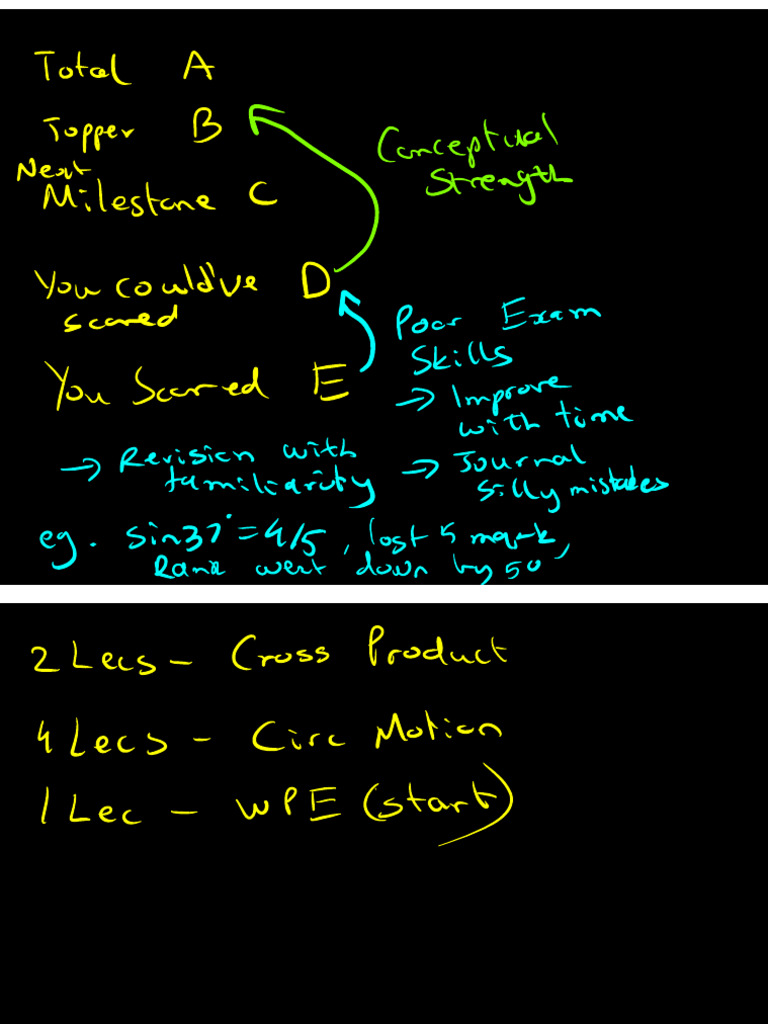 Total A
Topper B
Conceptual
Strength
Next
Milestone C
You could've D
scored
Poor Exam
Skills
You Scored E
→ Improve
with time
→ Revision with
familiarity
→ Journal
silly mistakes
eg. sin37° = 4/5, lost 5 mark,
Rank went down by 50
2 Lecs - Cross Product
4 Lecs - Circ Motion
1 Lec - WPE (start)